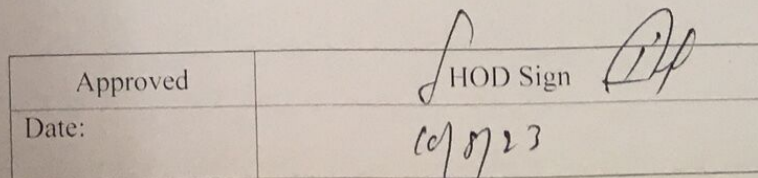 Approved HOD Sign
Date: 10/8/23